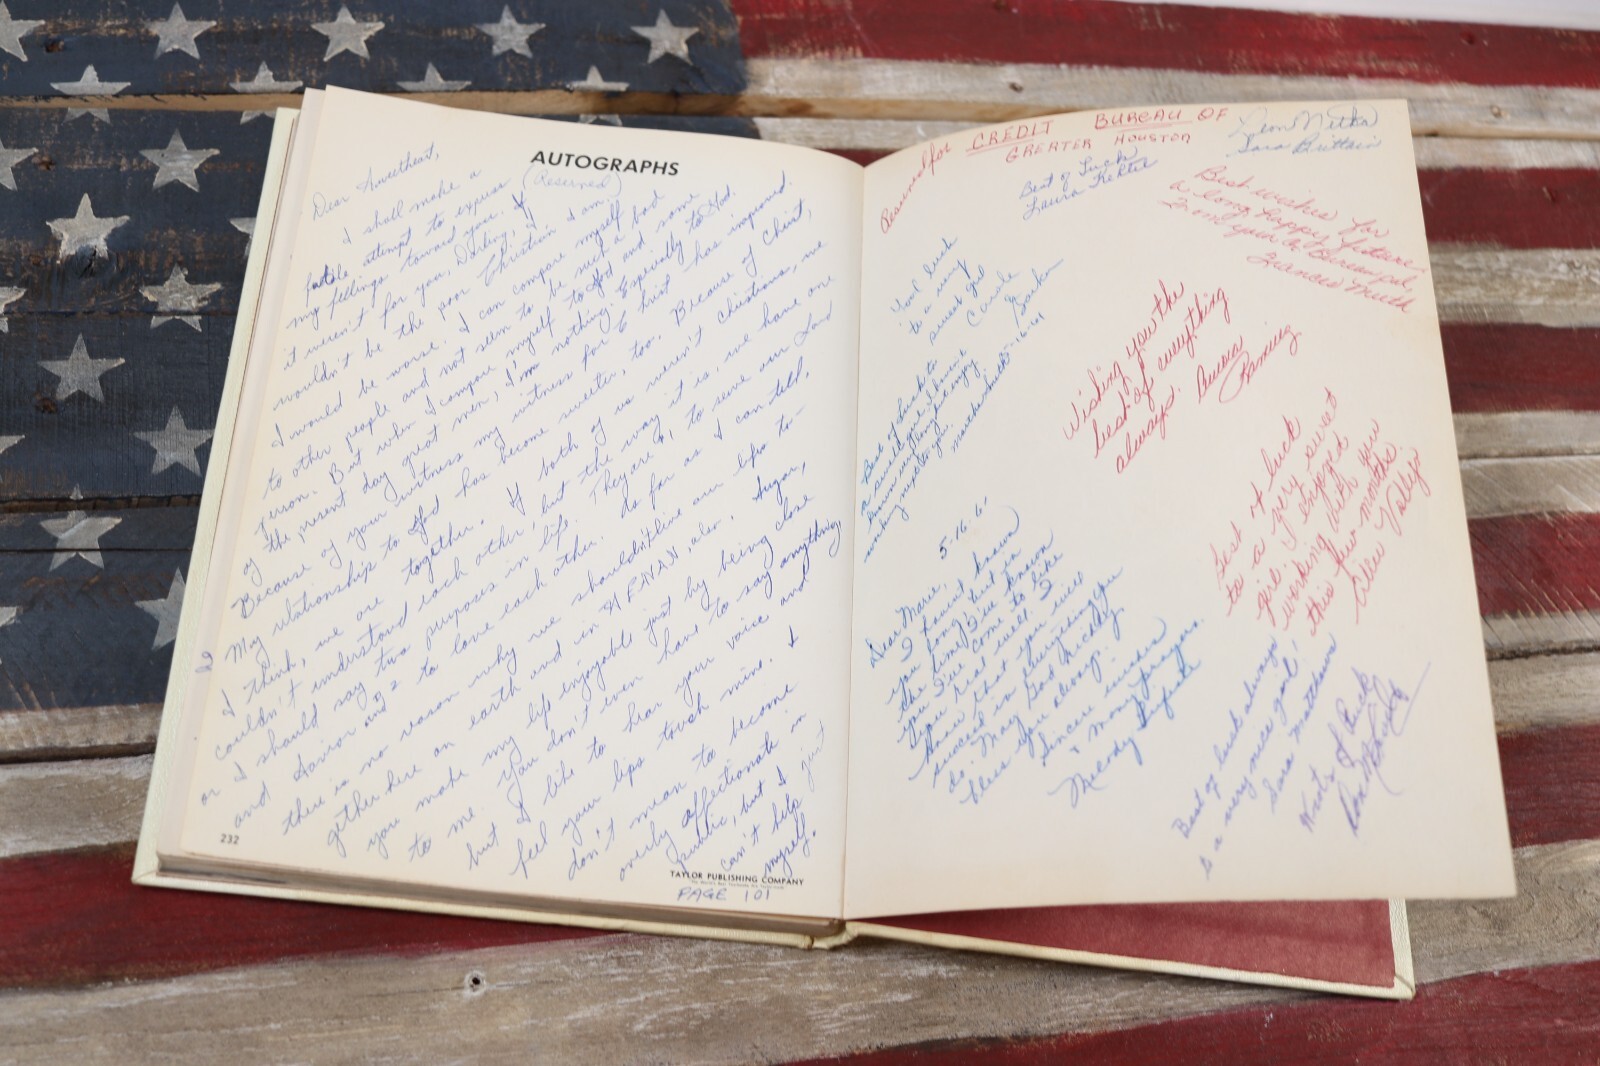 AUTOGRAPHS
(Reserved)
Dear Sweetheart,
I shall make a
futile attempt to express
my feelings toward you. If
it weren't for you, Darling, I
wouldn't be the poor Christian I am.
I would be worse. I can compare myself
to other people and not seem to be such a bad
person. But when I compare myself to God and some
of the present day great men, I'm nothing. Especially to God.
Because of your witness my witness for Christ has improved.
May relationship to God has become sweeter, too. Because of Christ,
I think, we are together. If both of us weren't Christians, we
couldn't understand each other, but the way it is, we have one
or I should say two purposes in life. They are #1, to serve our Lord
and Savior and #2 to love each other. As far as I can tell,
there is no reason why we shouldn't live our lives to-
gether here on earth and in HEAVEN, also. Sugar,
you make my life enjoyable just by being close
to me. You don't even have to say anything,
but I like to hear your voice and
feel your lips touch mine. I
don't mean to become
overly affectionate in
public, but I just
can't help
myself.
232
TAYLOR PUBLISHING COMPANY
PAGE 101
Reserved for CREDIT BUREAU OF
GREATER HOUSTON
Sara Brittain
Best of Luck
Laura
Best wishes for
a long happy future.
From your Cr. Bureau pal,
Frances
Good luck
to a very
sweet girl
Carole
Wishing you the
best of everything
always.
Ramirez
Best of luck to
a swell girl. I have
known you. I've enjoyed
working next to you.
Martha Smith 5-16-61
Best of luck
to a very sweet
girl. I enjoyed
working with you
this few months
Alice Vallejo
5-16-61
Dear Marie,
I haven't known
you long, but in
the time I've known
you I've come to like
you real well. I
know that you will
succeed in everything you
do. May God richly
bless you always.
Sincere wishes
& many prayers.
Melody
Best of luck always
to a very nice girl!
Sara Matthews
Worts of Luck